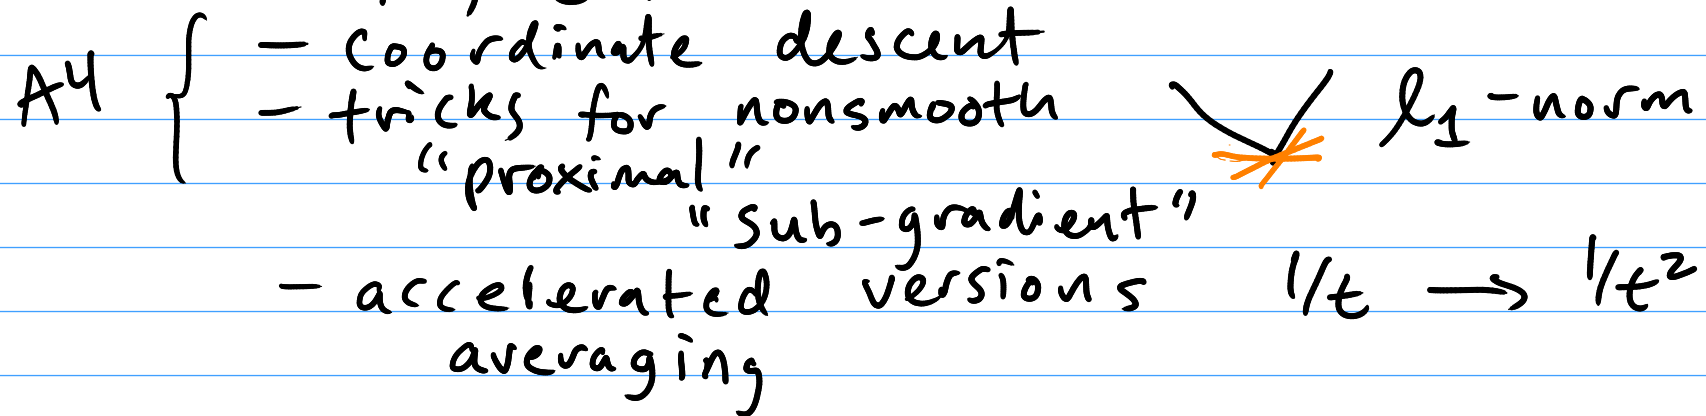 A4 { - coordinate descent
- tricks for nonsmooth ℓ₁-norm
"proximal"
"sub-gradient"
- accelerated versions 1/t → 1/t²
averaging